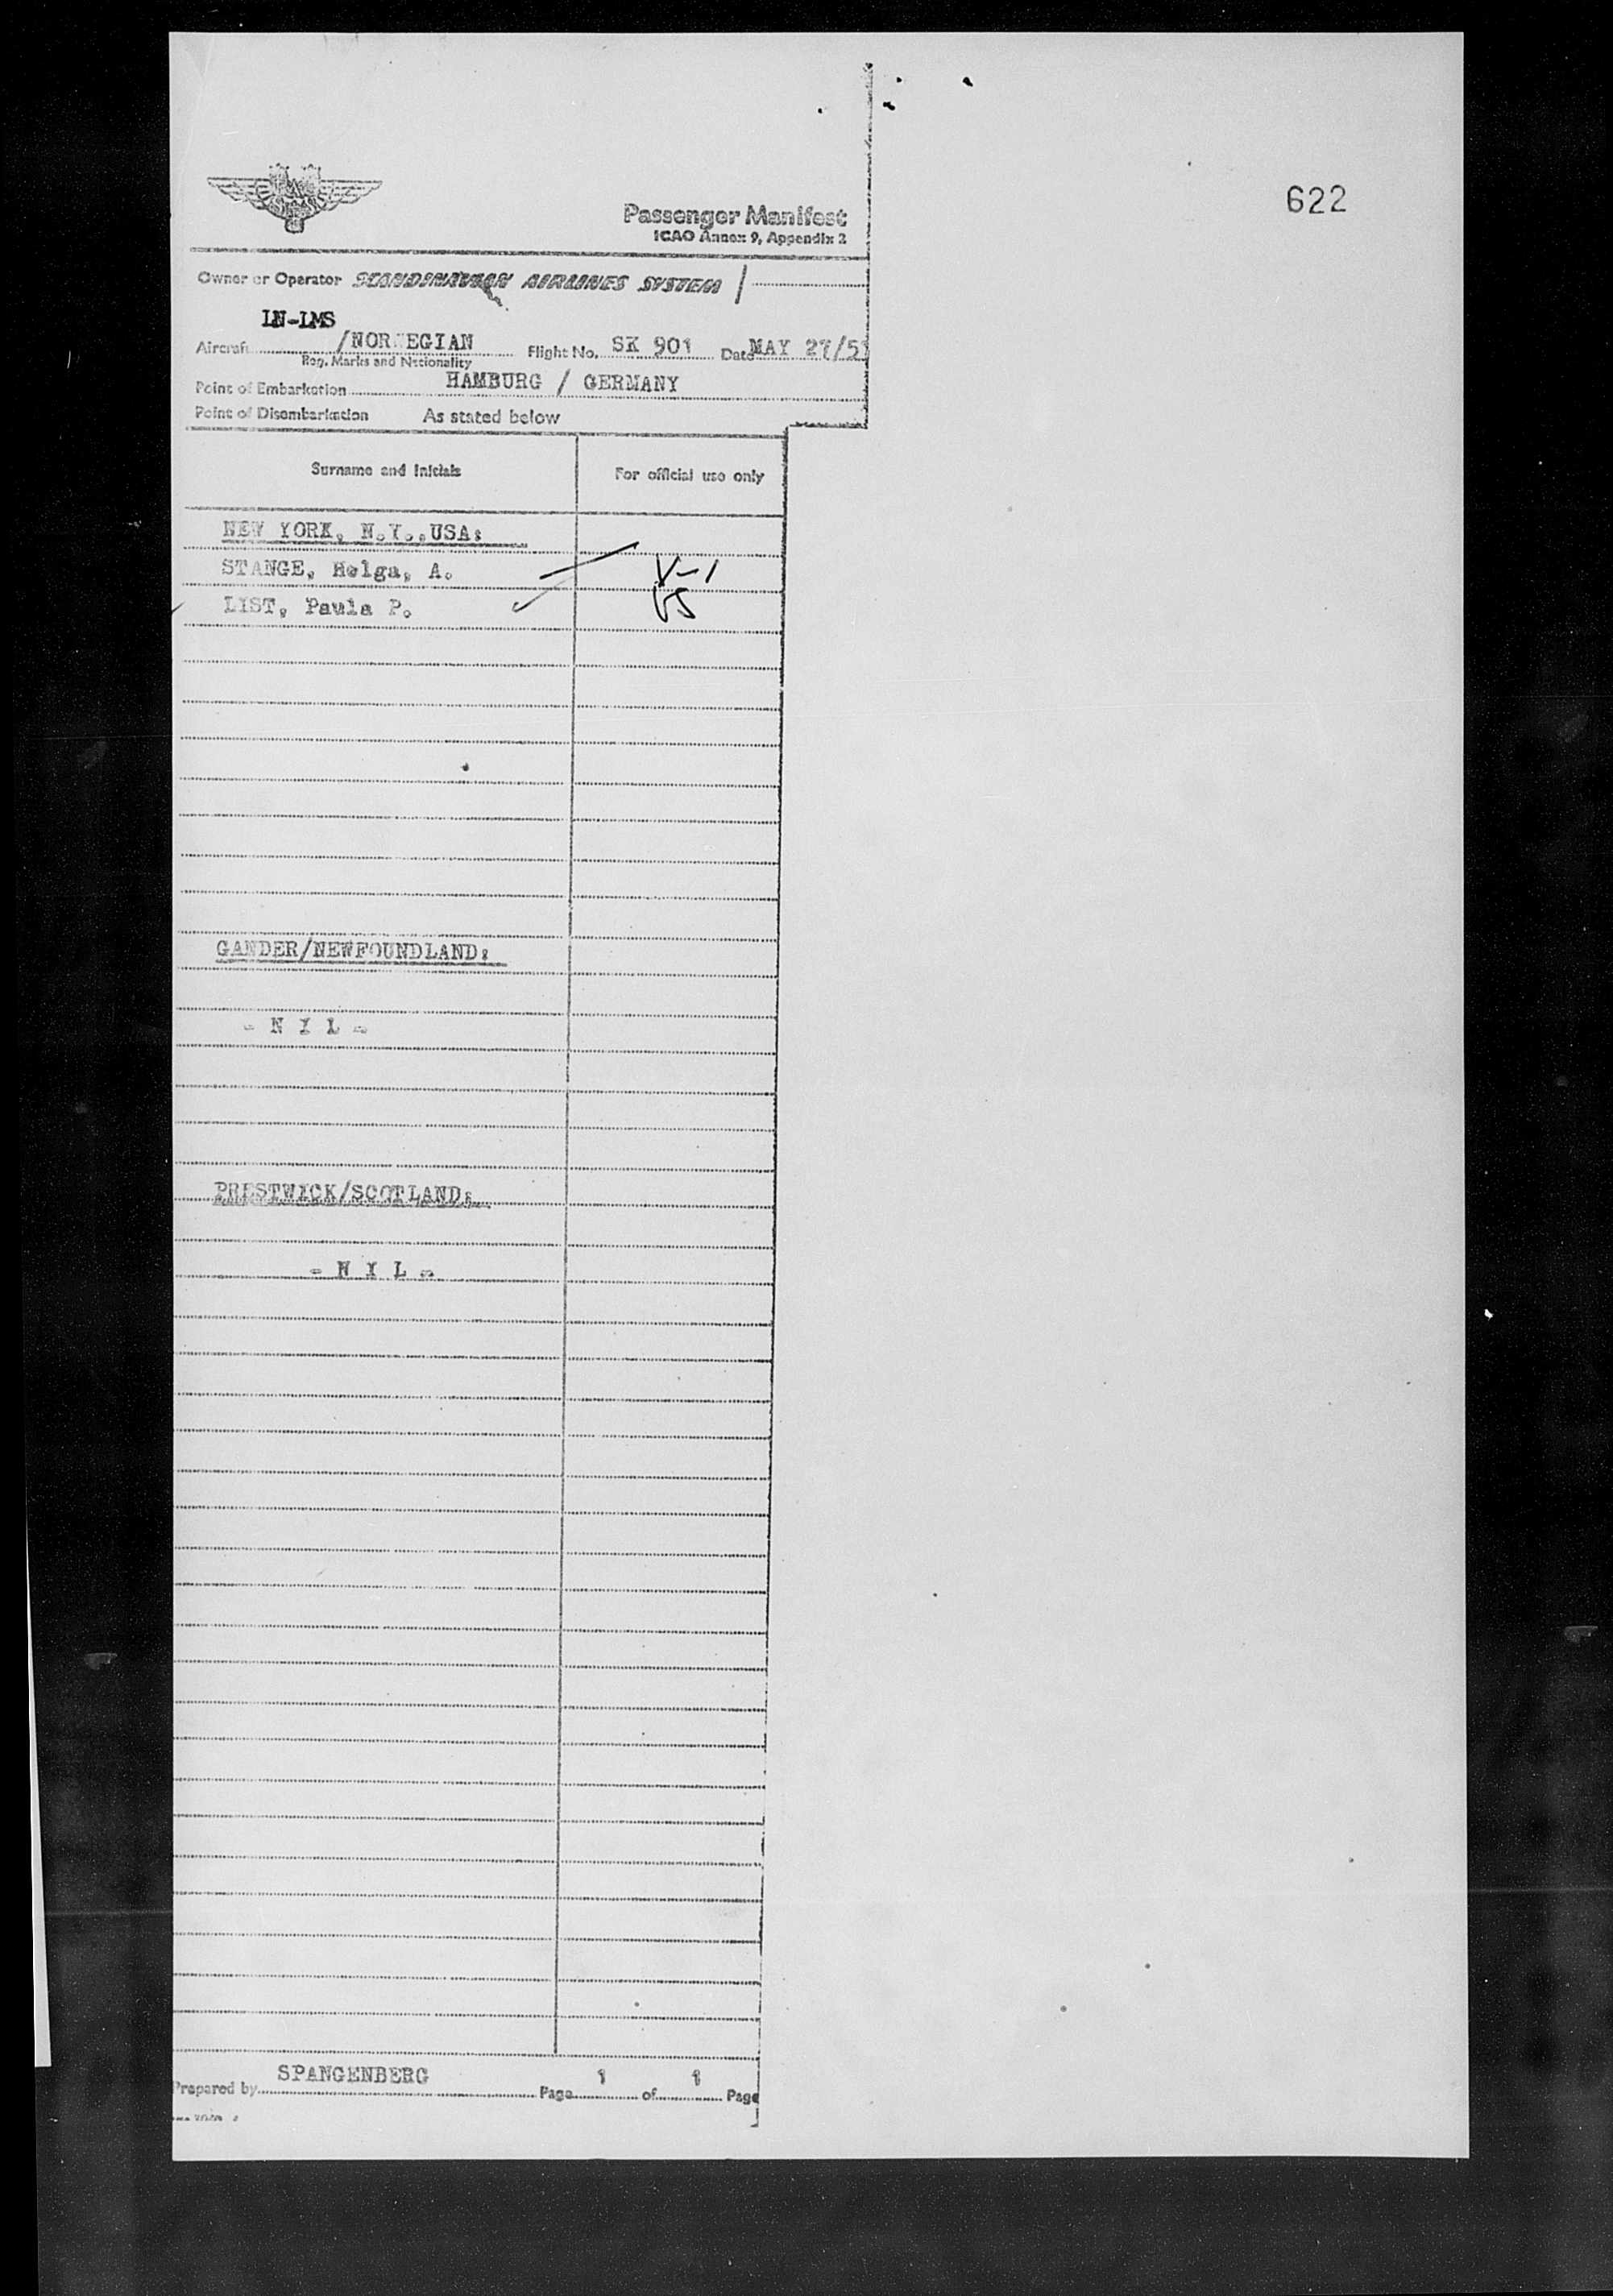 622
SAS
Passenger Manifest
ICAO Annex 9, Appendix 2
Owner or Operator SCANDINAVIAN AIRLINES SYSTEM
LN-LMS
Aircraft /NORWEGIAN Flight No. SK 901 Date MAY 27/5
Reg. Marks and Nationality
Point of Embarkation HAMBURG / GERMANY
Point of Disembarkation As stated below
Surname and Initials For official use only
NEW YORK, N.Y.,USA:
STANGE, Helga, A. V-1
LIST, Paula P.
GANDER/NEWFOUNDLAND:
- N I L -
PRESTWICK/SCOTLAND:
- N I L -
Prepared by SPANGENBERG Page 1 of 1 Page